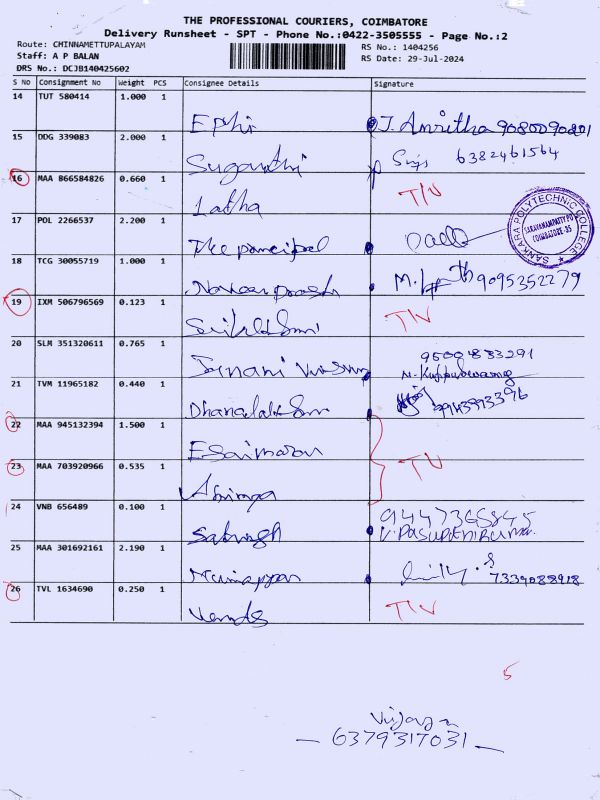 THE PROFESSIONAL COURIERS, COIMBATORE
Delivery Runsheet - SPT - Phone No.:0422-3505555 - Page No.:2
Route: CHINNAMETTUPALAYAM
RS No.: 1404256
Staff: A P BALAN
RS Date: 29-Jul-2024
DRS No.: DCJB140425602
S No Consignment No Weight PCS Consignee Details Signature
14 TUT 580414 1.000 1
Ephi J. Amritha 9080090201
15 DDG 339083 2.000 1
Suganthi 6382461564
16 MAA 866584826 0.660 1
Latha T/V
17 POL 2266537 2.200 1
The principal
SANKARA POLYTECHNIC COLLEGE
SARAVANAMPATTY PO
COIMBATORE-35
18 TCG 30055719 1.000 1
9095352279
19 IXM 506796569 0.123 1
T/V
20 SLM 351320611 0.765 1
9500483291
M. Kuppuswamy
21 TVM 11965182 0.440 1
9943993396
22 MAA 945132394 1.500 1
23 MAA 703920966 0.535 1
T/V
24 VNB 656489 0.100 1
9447365845
25 MAA 301692161 2.190 1
7339088918
26 TVL 1634690 0.250 1
T/V
5
Vijaya
6379317031